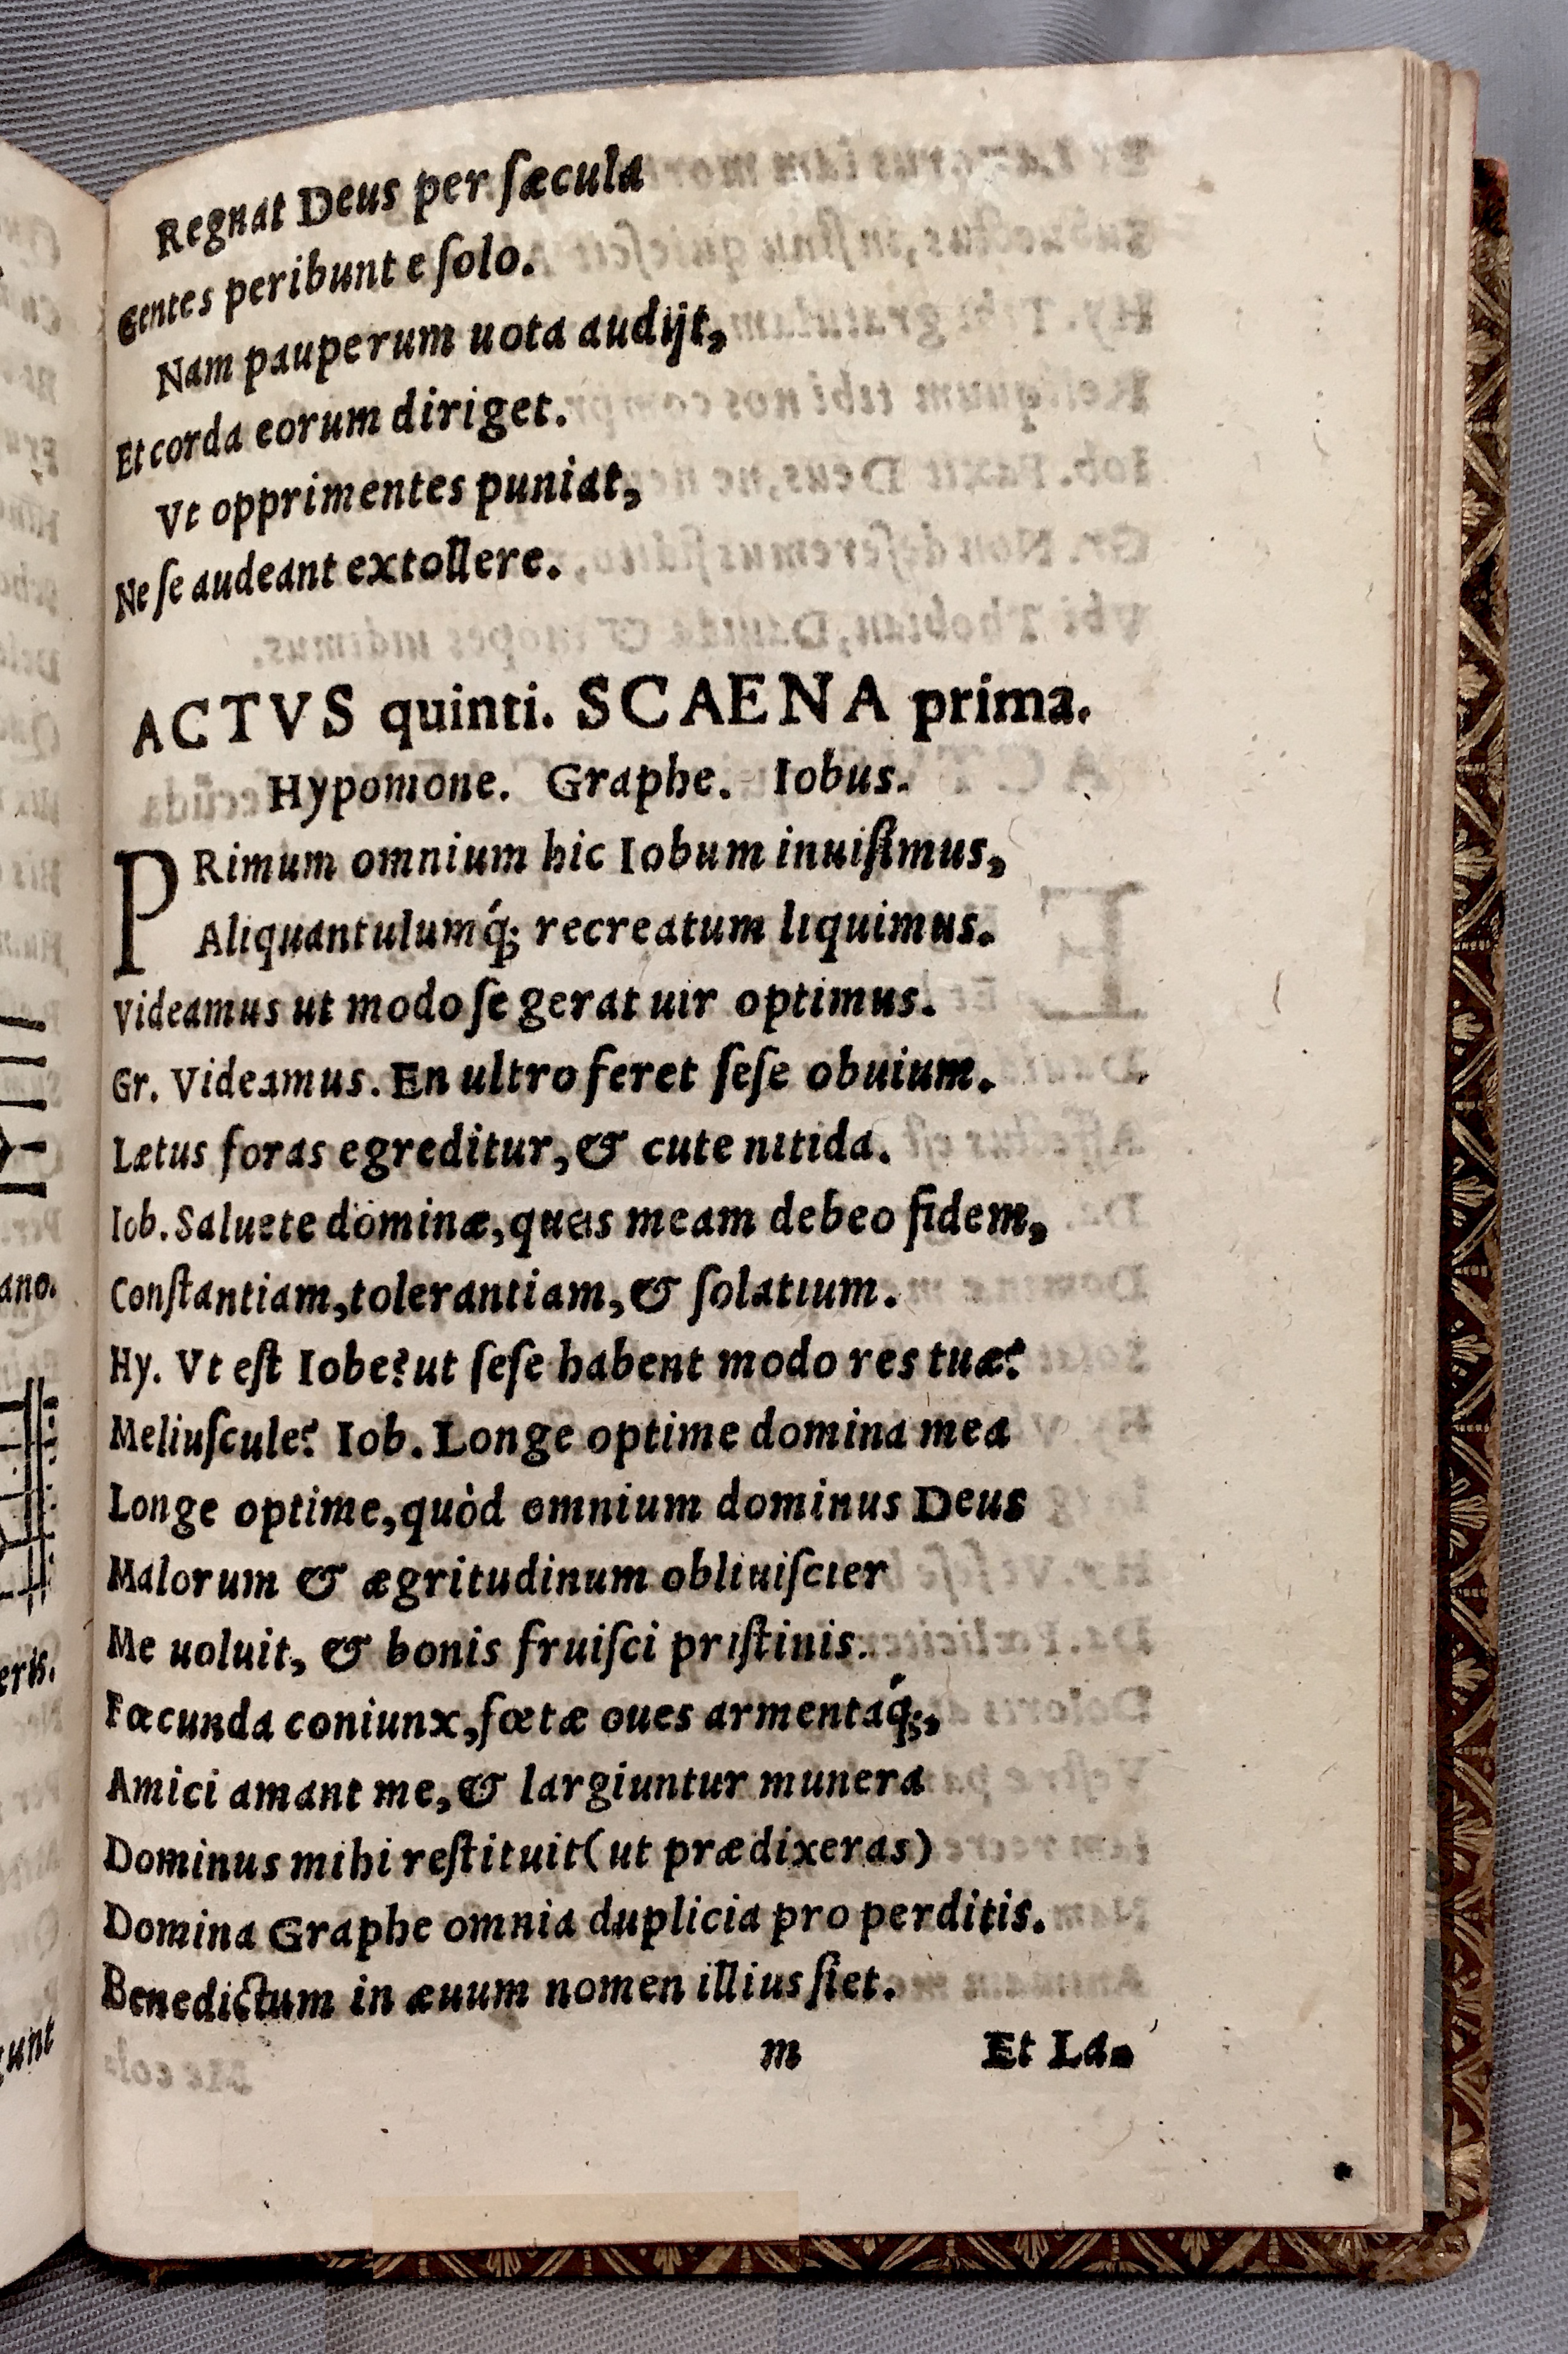 Regnat Deus per ſæcula
Gentes peribunt e ſolo.
Nam pauperum uota audijt,
Et corda eorum diriget.
Vt opprimentes puniat,
Ne ſe audeant extollere.
ACTVS quinti. SCAENA prima.
Hypomone. Graphe. Iobus.
PRimum omnium hic Iobum inuiſimus,
Aliquantulumq́; recreatum liquimus.
Videamus ut modo ſe gerat uir optimus.
Gr. Videamus. En ultro feret ſeſe obuium.
Lætus foras egreditur, & cute nitida.
Iob. Saluete dominæ, queis meam debeo fidem,
Conſtantiam, tolerantiam, & ſolatium.
Hy. Vt eſt Iobe? ut ſeſe habent modo res tuæ?
Meliuſcule? Iob. Longe optime domina mea
Longe optime, quòd omnium dominus Deus
Malorum & ægritudinum obliuiſcier
Me uoluit, & bonis fruiſci priſtinis.
Fœcunda coniunx, fœtæ oues armentaq́;,
Amici amant me, & largiuntur munera
Dominus mihi reſtituit (ut prædixeras)
Domina Graphe omnia duplicia pro perditis.
Benedictum in æuum nomen illius ſiet.
m Et La-
ano.
eris.
unt